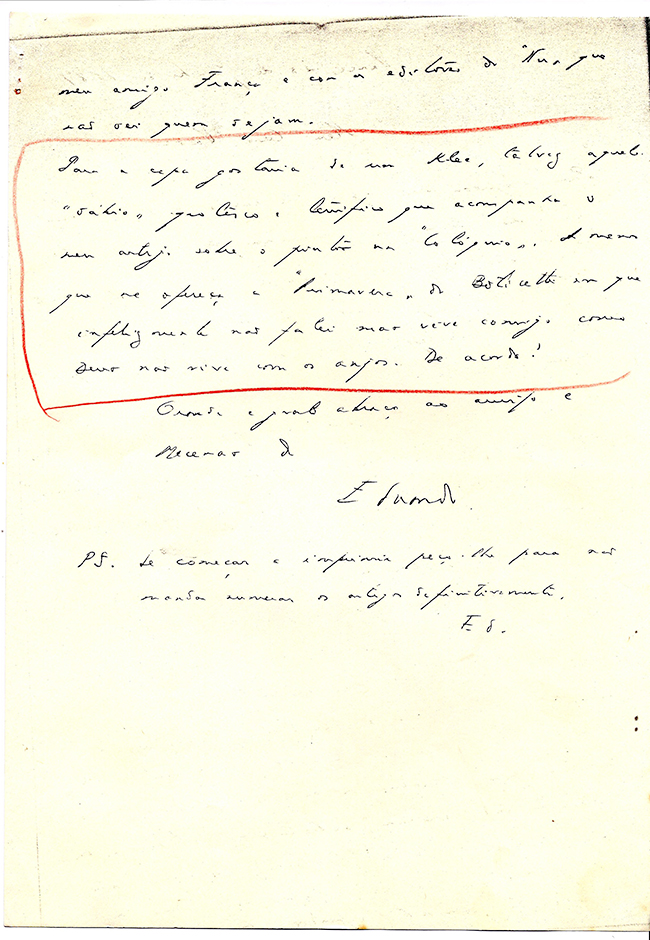 meu amigo França e com os editores de "Nu" que
não sei quem sejam.
Para a capa gostaria de um Klee, talvez aquele
"sábio" grotesco e que acompanha o
meu artigo sobre o pintor na "Colóquio". A menos
que me apeteça a "Primavera" de Boticelli em que
infelizmente não falei mas vive comigo como
Deus não vive com os anjos. De acordo?
Grande e grato abraço ao amigo e
Mecenas do
Eduardo
PS. Se começar a imprimir peço-lhe para não
mandar numerar os artigos definitivamente.
E. d.